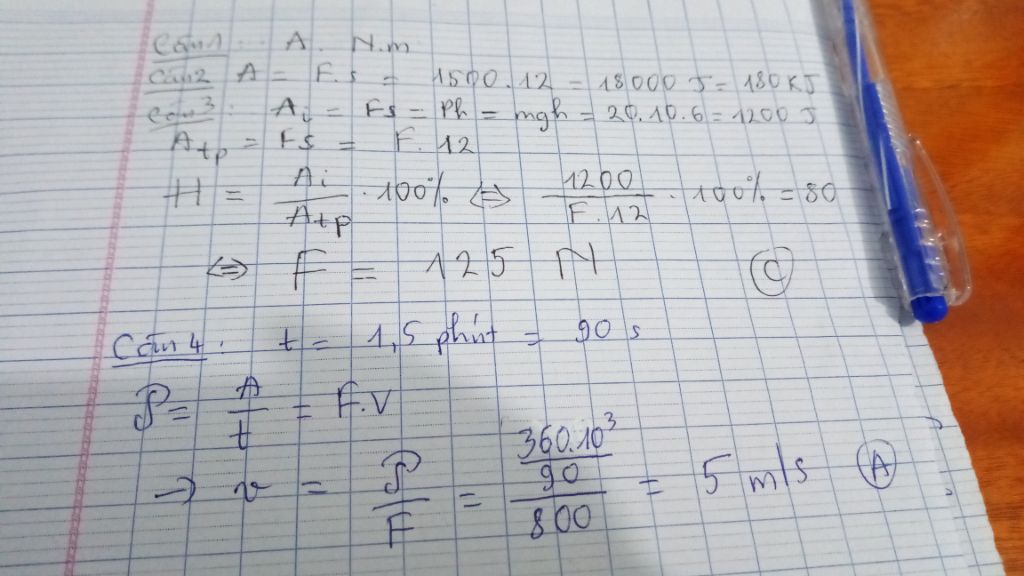 Câu 1: A. N.m
Câu 2 A = F.s = 1500.12 = 18000 J = 180 KJ
Câu 3: Ai = Fs = Ph = mgh = 20.10.6 = 1200 J
Atp = Fs = F.12
H = Ai/Atp . 100% ⇔ 1200/F.12 . 100% = 80
⇔ F = 125 N C
Câu 4: t = 1,5 phút = 90 s
P = A/t = F.V
→ v = P/F = (360.10³/90)/800 = 5 m/s A